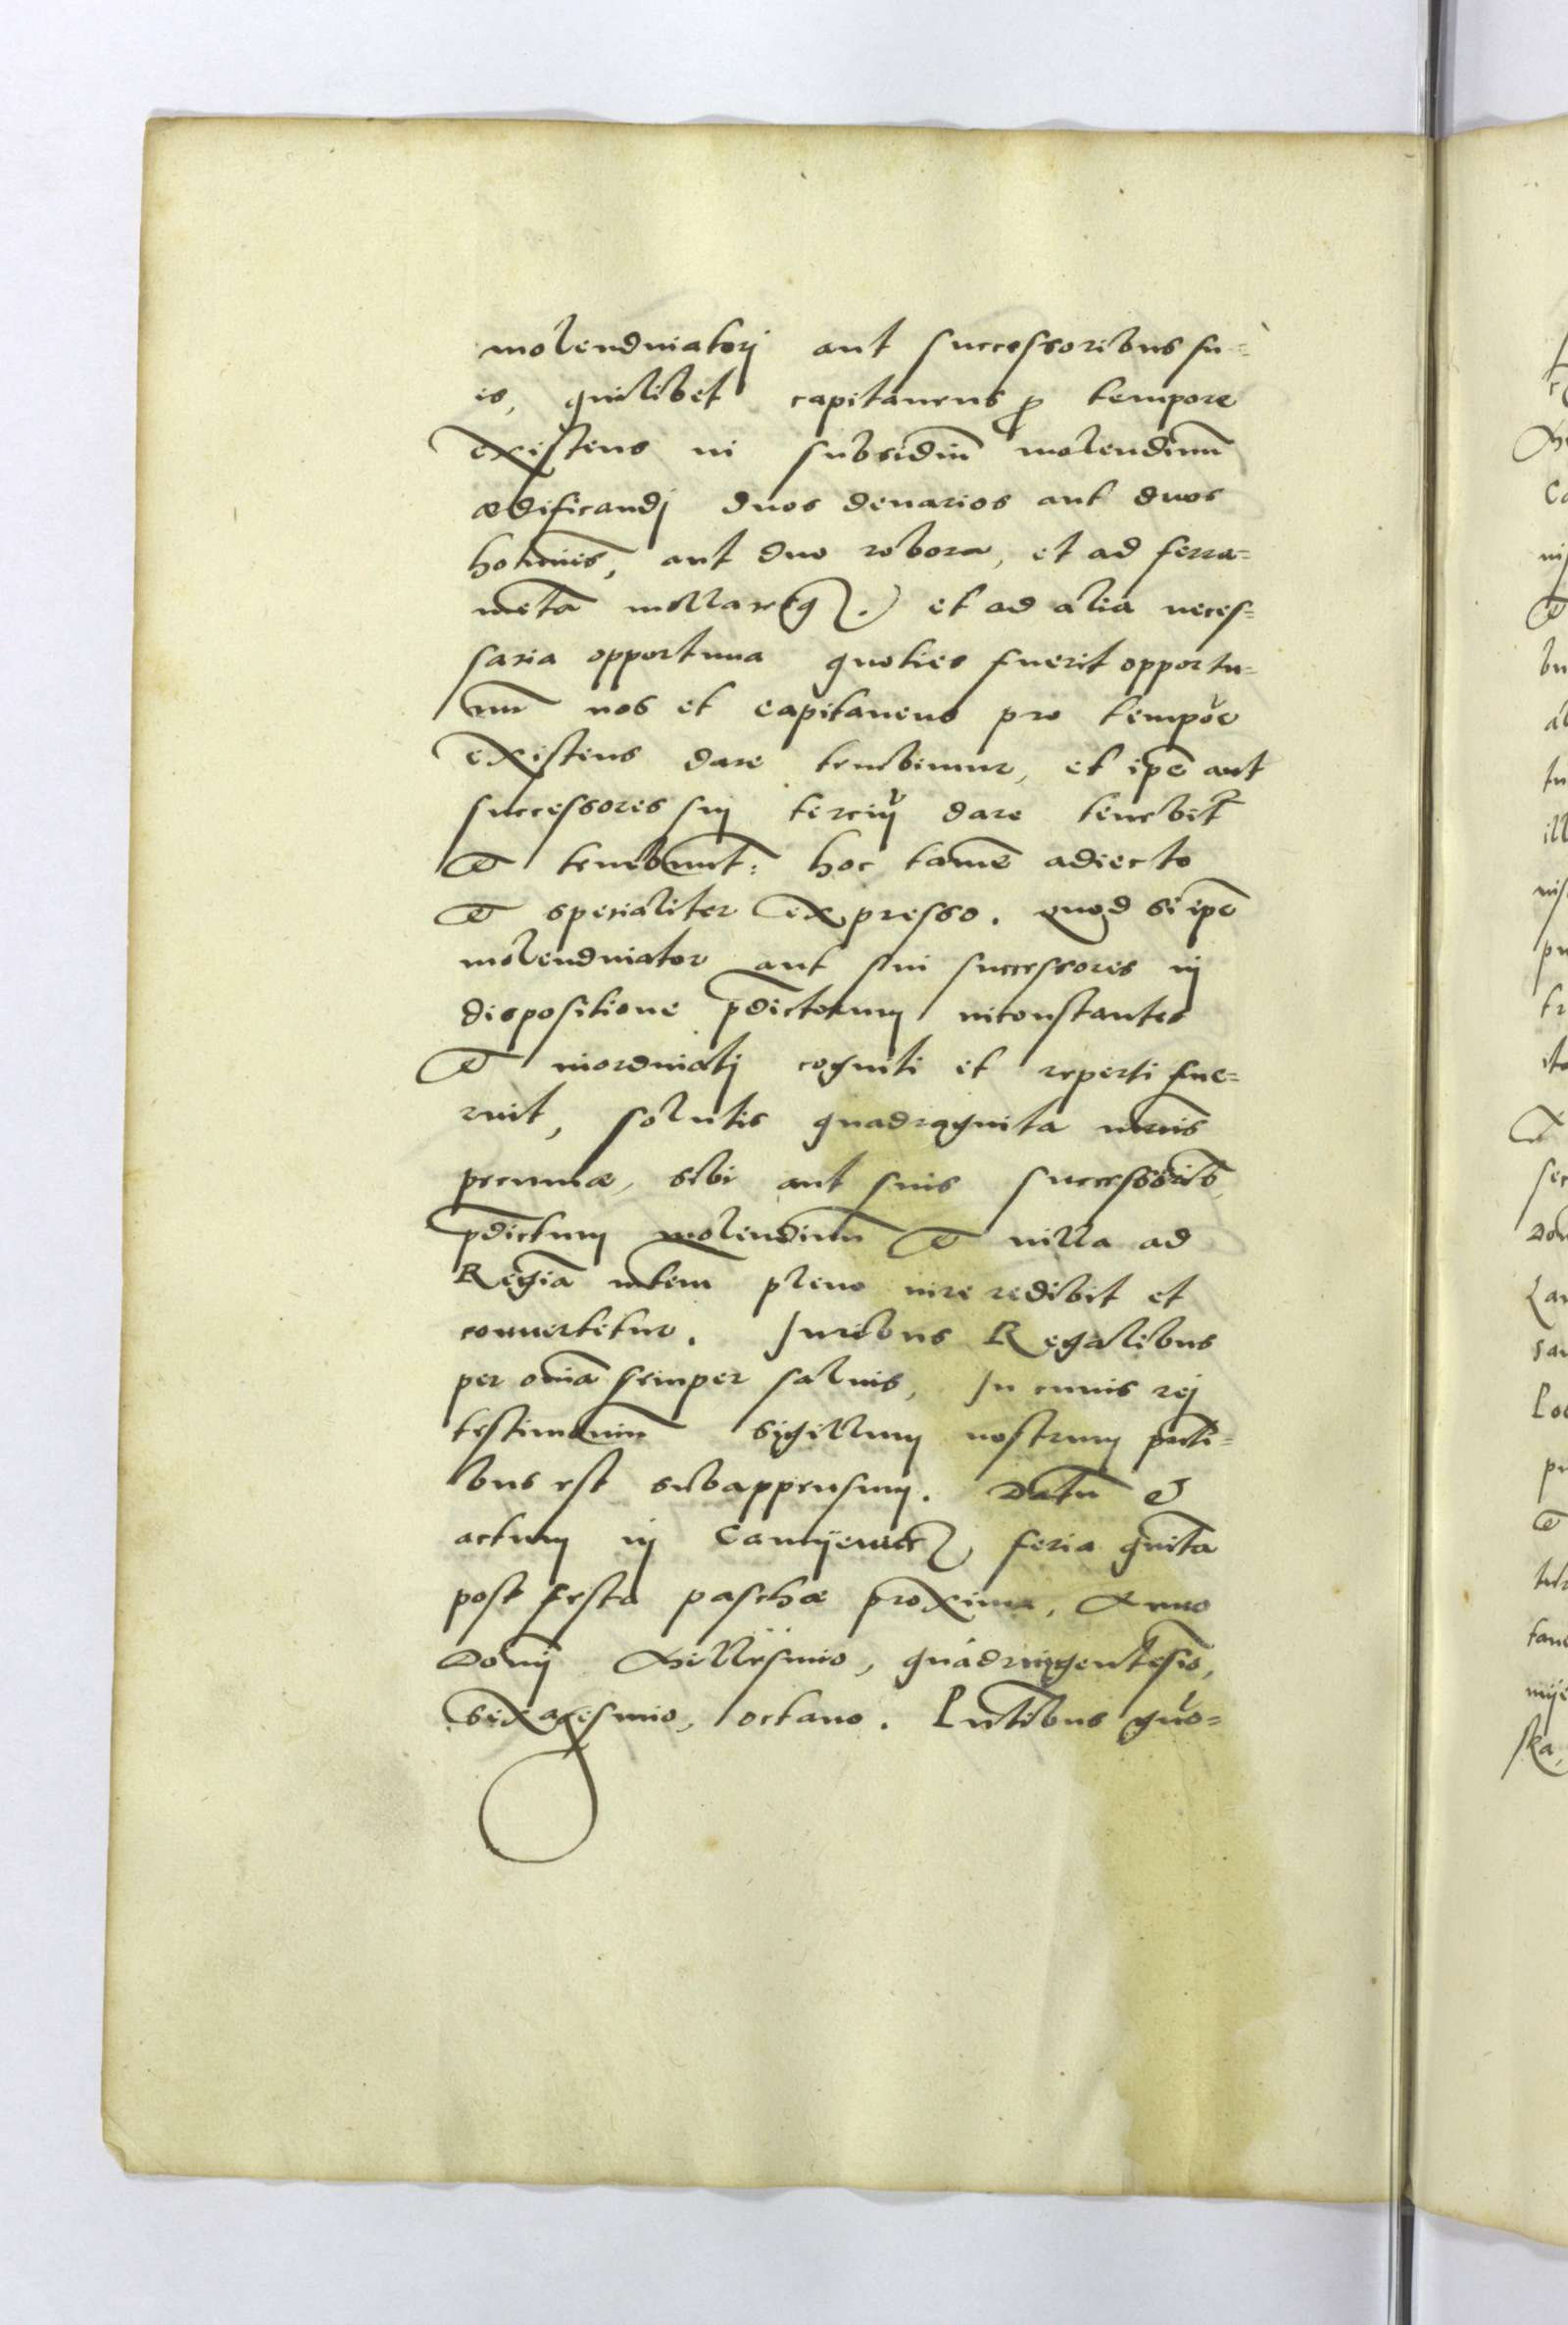 molendinatorj aut successoribus su=
is, quilibet capitaneus p tempore
existens in subsidiū molendinū
ædificandj duos denarios aut duos
homines, aut duo robora, et ad ferra=
mēta et ad alia neces=
saria opportuna quoties fuerit opportu=
nū nos et capitaneus pro tempore
existens dare tenebimur, et ipē aut
successores suj terciū dare tenebit
Et tenebunt: hoc tamē adiecto
Et specialiter expresso. quod si ipē
molendinator aut sui successores in
dispositione p̄dictorum inconstantes
Et inordinatj cogniti et reperti fue=
rint, solutis quadraginta mrcis
pecuniæ, sibi aut suis successorib
p̄dictum molendinū Et villa ad
Regiā mtem pleno iure redibit et
conuertetur. Juribus Regalibus
per oīa semper saluis, In cuius rej
testimoniū sigillum nostrum pnti=
bus est subappensum. Datū &
actum in feria quīta
post festa paschæ proxima, Anno
Domī Millesimo, quadringentesīo,
sexagesimo, octauo. Pntibus quo=